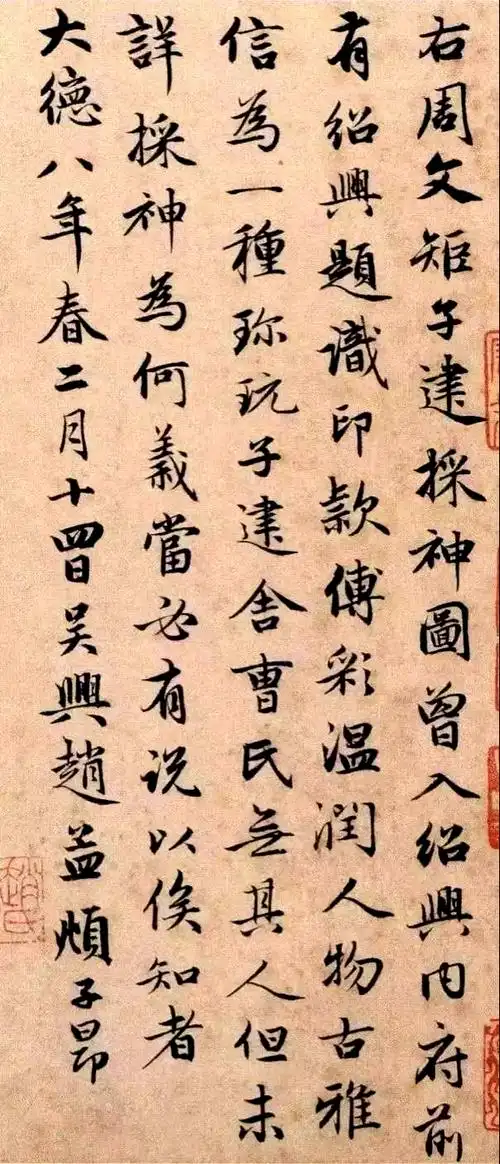 右周文矩子建採神圖曾入紹興內府前
有紹興題識印款傅彩温潤人物古雅
信為一種珎玩子建舍曹氏無其人但未
詳採神為何義當必有说以俟知者
大德八年春二月十四日吴興趙孟頫子昂